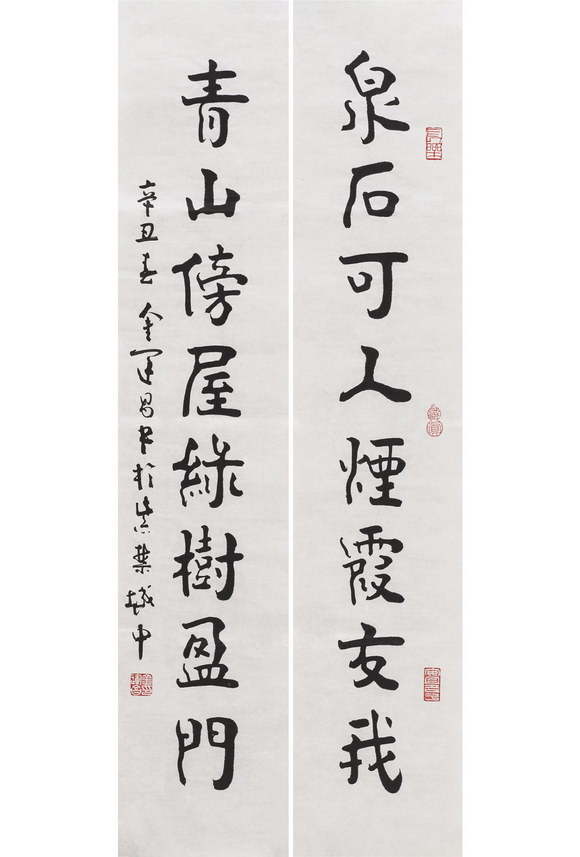 泉石可人煙霞友我
青山傍屋綠樹盈門
辛丑春 金運昌書於紫禁城中